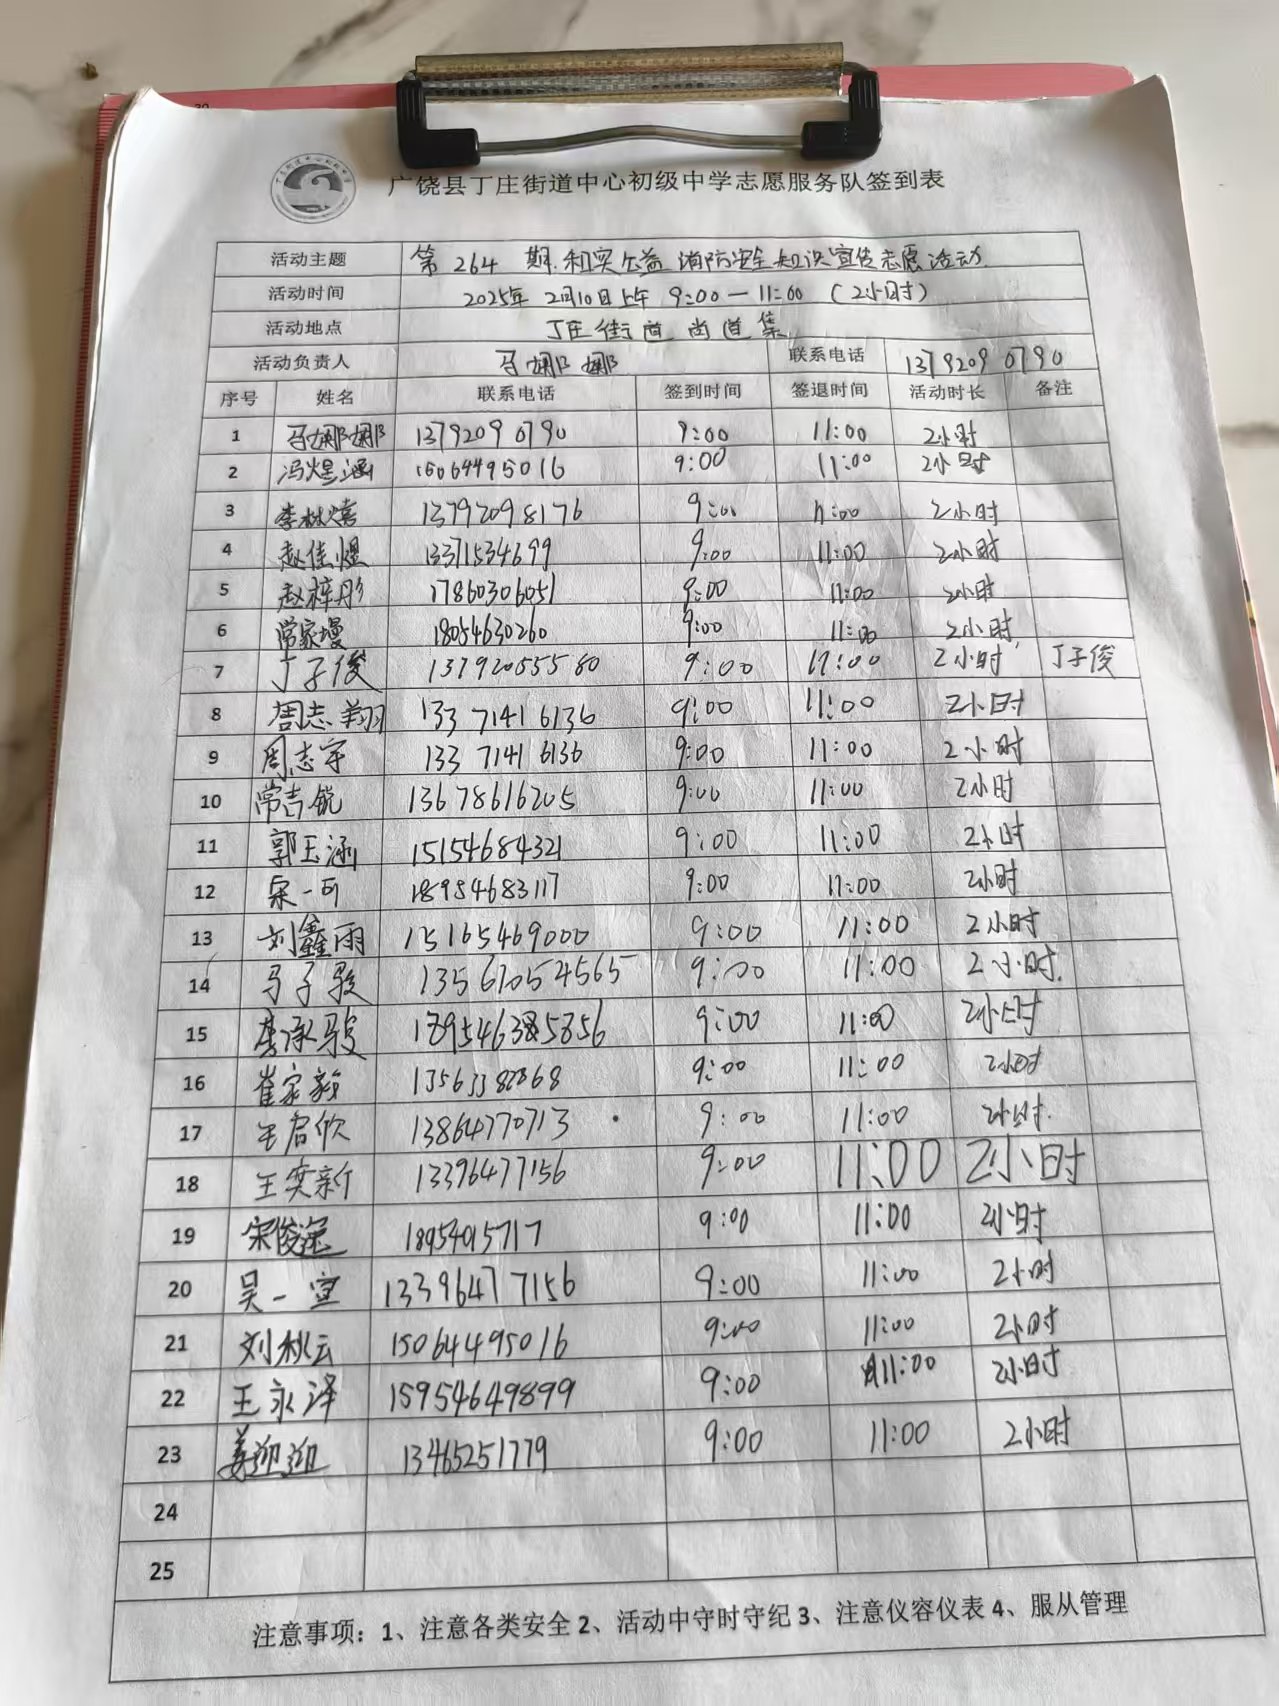 广饶县丁庄街道中心初级中学志愿服务队签到表
活动主题 第 264 期.和实公益 消防安全知识宣传志愿活动.
活动时间 2025年 2月10日上午 9:00 — 11:00 （2小时）
活动地点 丁庄街道 尚道集
活动负责人 马娜娜 联系电话 13792090790
序号 姓名 联系电话 签到时间 签退时间 活动时长 备注
1 马娜娜 13792090790 9:00 11:00 2小时
2 冯煜涵 15064495016 9:00 11:00 2小时
3 李林熺 13792098176 9:00 11:00 2小时
4 赵佳煜 13371534699 9:00 11:00 2小时
5 赵梓彤 17860306051 9:00 11:00 2小时
6 常家墁 18054630260 9:00 11:00 2小时
7 丁子俊 13792055580 9:00 11:00 2小时 丁子俊
8 周志翔 133 7141 6136 9:00 11:00 2小时
9 周志宇 133 7141 6136 9:00 11:00 2小时
10 常吉锐 13678616205 9:00 11:00 2小时
11 郭玉涵 15154684321 9:00 11:00 2小时
12 宋一可 18954683117 9:00 11:00 2小时
13 刘鑫雨 15165469000 9:00 11:00 2小时
14 马子骏 13561054565 9:00 11:00 2小时.
15 李承骏 9:00 11:00 2小时
16 崔家毅 13563382868 9:00 11:00 2小时
17 王启欣 13864770713 9:00 11:00 2小时.
18 王奕新 13396477156 9:00 11:00 2小时
19 宋俊逸 18954015717 9:00 11:00 2小时
20 吴一宣 13396477156 9:00 11:00 2小时
21 刘秋云 15064495016 9:00 11:00 2小时
22 王永泽 15954649899 9:00 11:00 2小时
23 姜迎迎 13465251779 9:00 11:00 2小时
24
25
注意事项：1、注意各类安全 2、活动中守时守纪 3、注意仪容仪表 4、服从管理